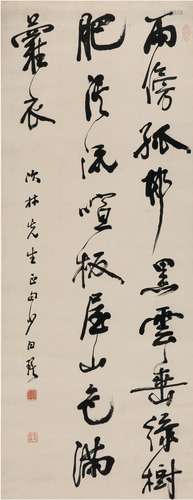 雨傍孤村黑雲垂綠樹
肥溪流喧板屋山色滿
蘿衣
林先生正